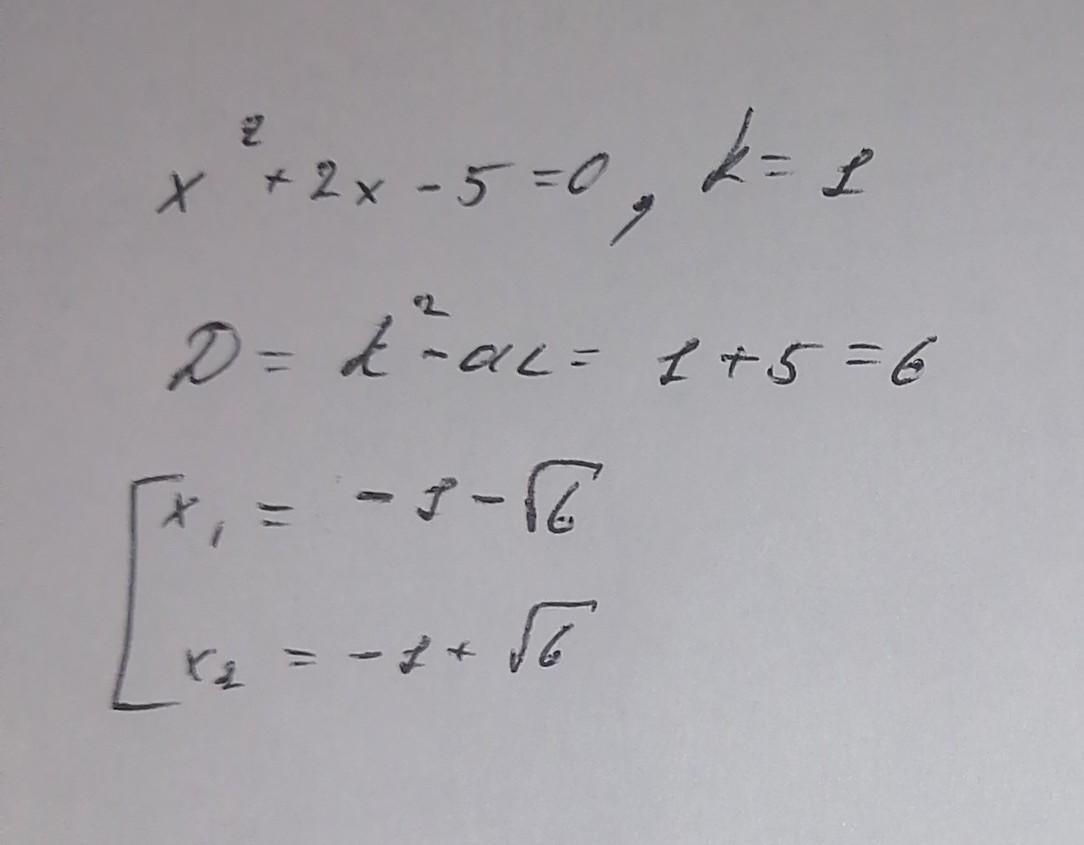 x² + 2x - 5 = 0, k = 1
D = k² - ac = 1 + 5 = 6
x₁ = -1 - √6
x₂ = -1 + √6